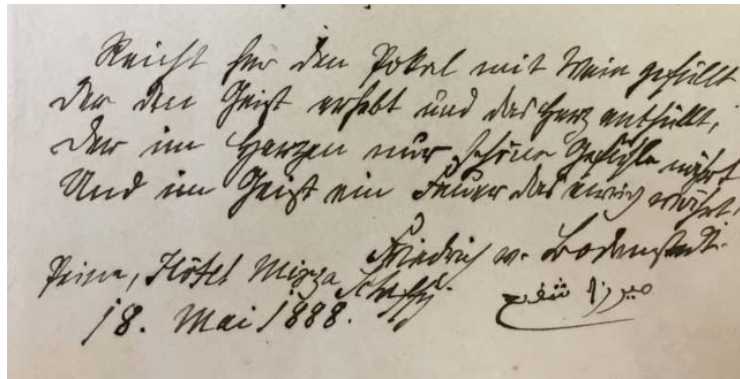 Reicht her den Pokal mit Wein gefüllt
Der den Geist erhebt und das Herz enthüllt,
Der im Herzen nur schöne Gefühle nährt
Und im Geist ein Feuer das ewig währt.
Friedrich v. Bodenstedt.
Peine, Hôtel Mirza Schaffy.
18. Mai 1888.
میرزا شفیع